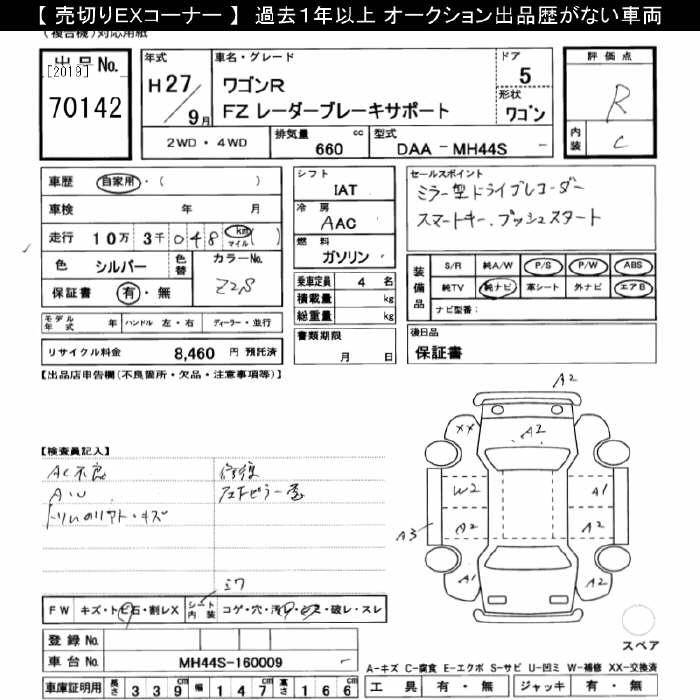 【 売切りEXコーナー 】 過去１年以上 オークション出品歴がない車両
(複合機)対応用紙
出品No.
[2019]
70142
年式
H27/9月
車名・グレード
ワゴンR
FZ レーダーブレーキサポート
ドア
5
形状
ワゴン
評価点
R
内装
C
2WD・4WD
排気量
660 cc
型式
DAA - MH44S -
車歴 自家用・( )
車検 年 月
走行 10万 3千 048 km マイル ( )
色 シルバー 色替
カラーNo.
Z2S
保証書 有・無
シフト
IAT
冷房
AAC
燃料
ガソリン
乗車定員 4 名
積載量 kg
総重量 kg
セールスポイント
ミラー型ドライブレコーダー
スマートキー、プッシュスタート
装備品
S/R 純A/W P/S P/W ABS
純TV 純ナビ 革シート 外ナビ エアB
ナビ型番：
モデル年式 年 ハンドル 左・右 ディーラー・並行
リサイクル料金 8,460 円 預託済
書類期限
月 日
後日品
保証書
【出品店申告欄(不良箇所・欠品・注意事項等)】
A2
【検査員記入】
AC不良
AW
キズ
修復
XX
A2
W2
A1
A3
A2
A2
A1
A2
FW キズ・トビ石・割レX シート内装 コゲ・穴・汚レ・シミ・破レ・スレ
登録No.
車台No. MH44S-160009 -
車庫証明用 長さ 339 幅 147 高さ 166
スペア
A-キズ C-腐食 E-エクボ S-サビ U-凹ミ W-補修 XX-交換済
工具 有・無 ジャッキ 有・無